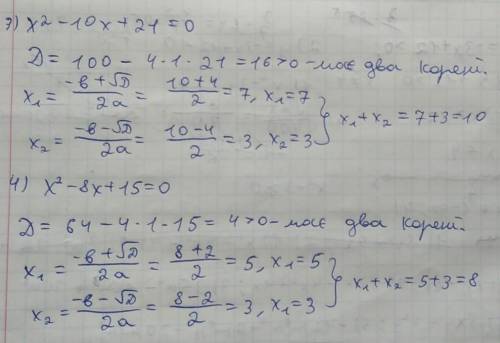 3) x² - 10x + 21 = 0
D = 100 - 4·1·21 = 16 > 0 - має два корені.
x₁ = (-b + √D)/2a = (10 + 4)/2 = 7, x₁ = 7
x₂ = (-b - √D)/2a = (10 - 4)/2 = 3, x₂ = 3
} x₁ + x₂ = 7 + 3 = 10
4) x² - 8x + 15 = 0
D = 64 - 4·1·15 = 4 > 0 - має два корені.
x₁ = (-b + √D)/2a = (8 + 2)/2 = 5, x₁ = 5
x₂ = (-b - √D)/2a = (8 - 2)/2 = 3, x₁ = 3
} x₁ + x₂ = 5 + 3 = 8